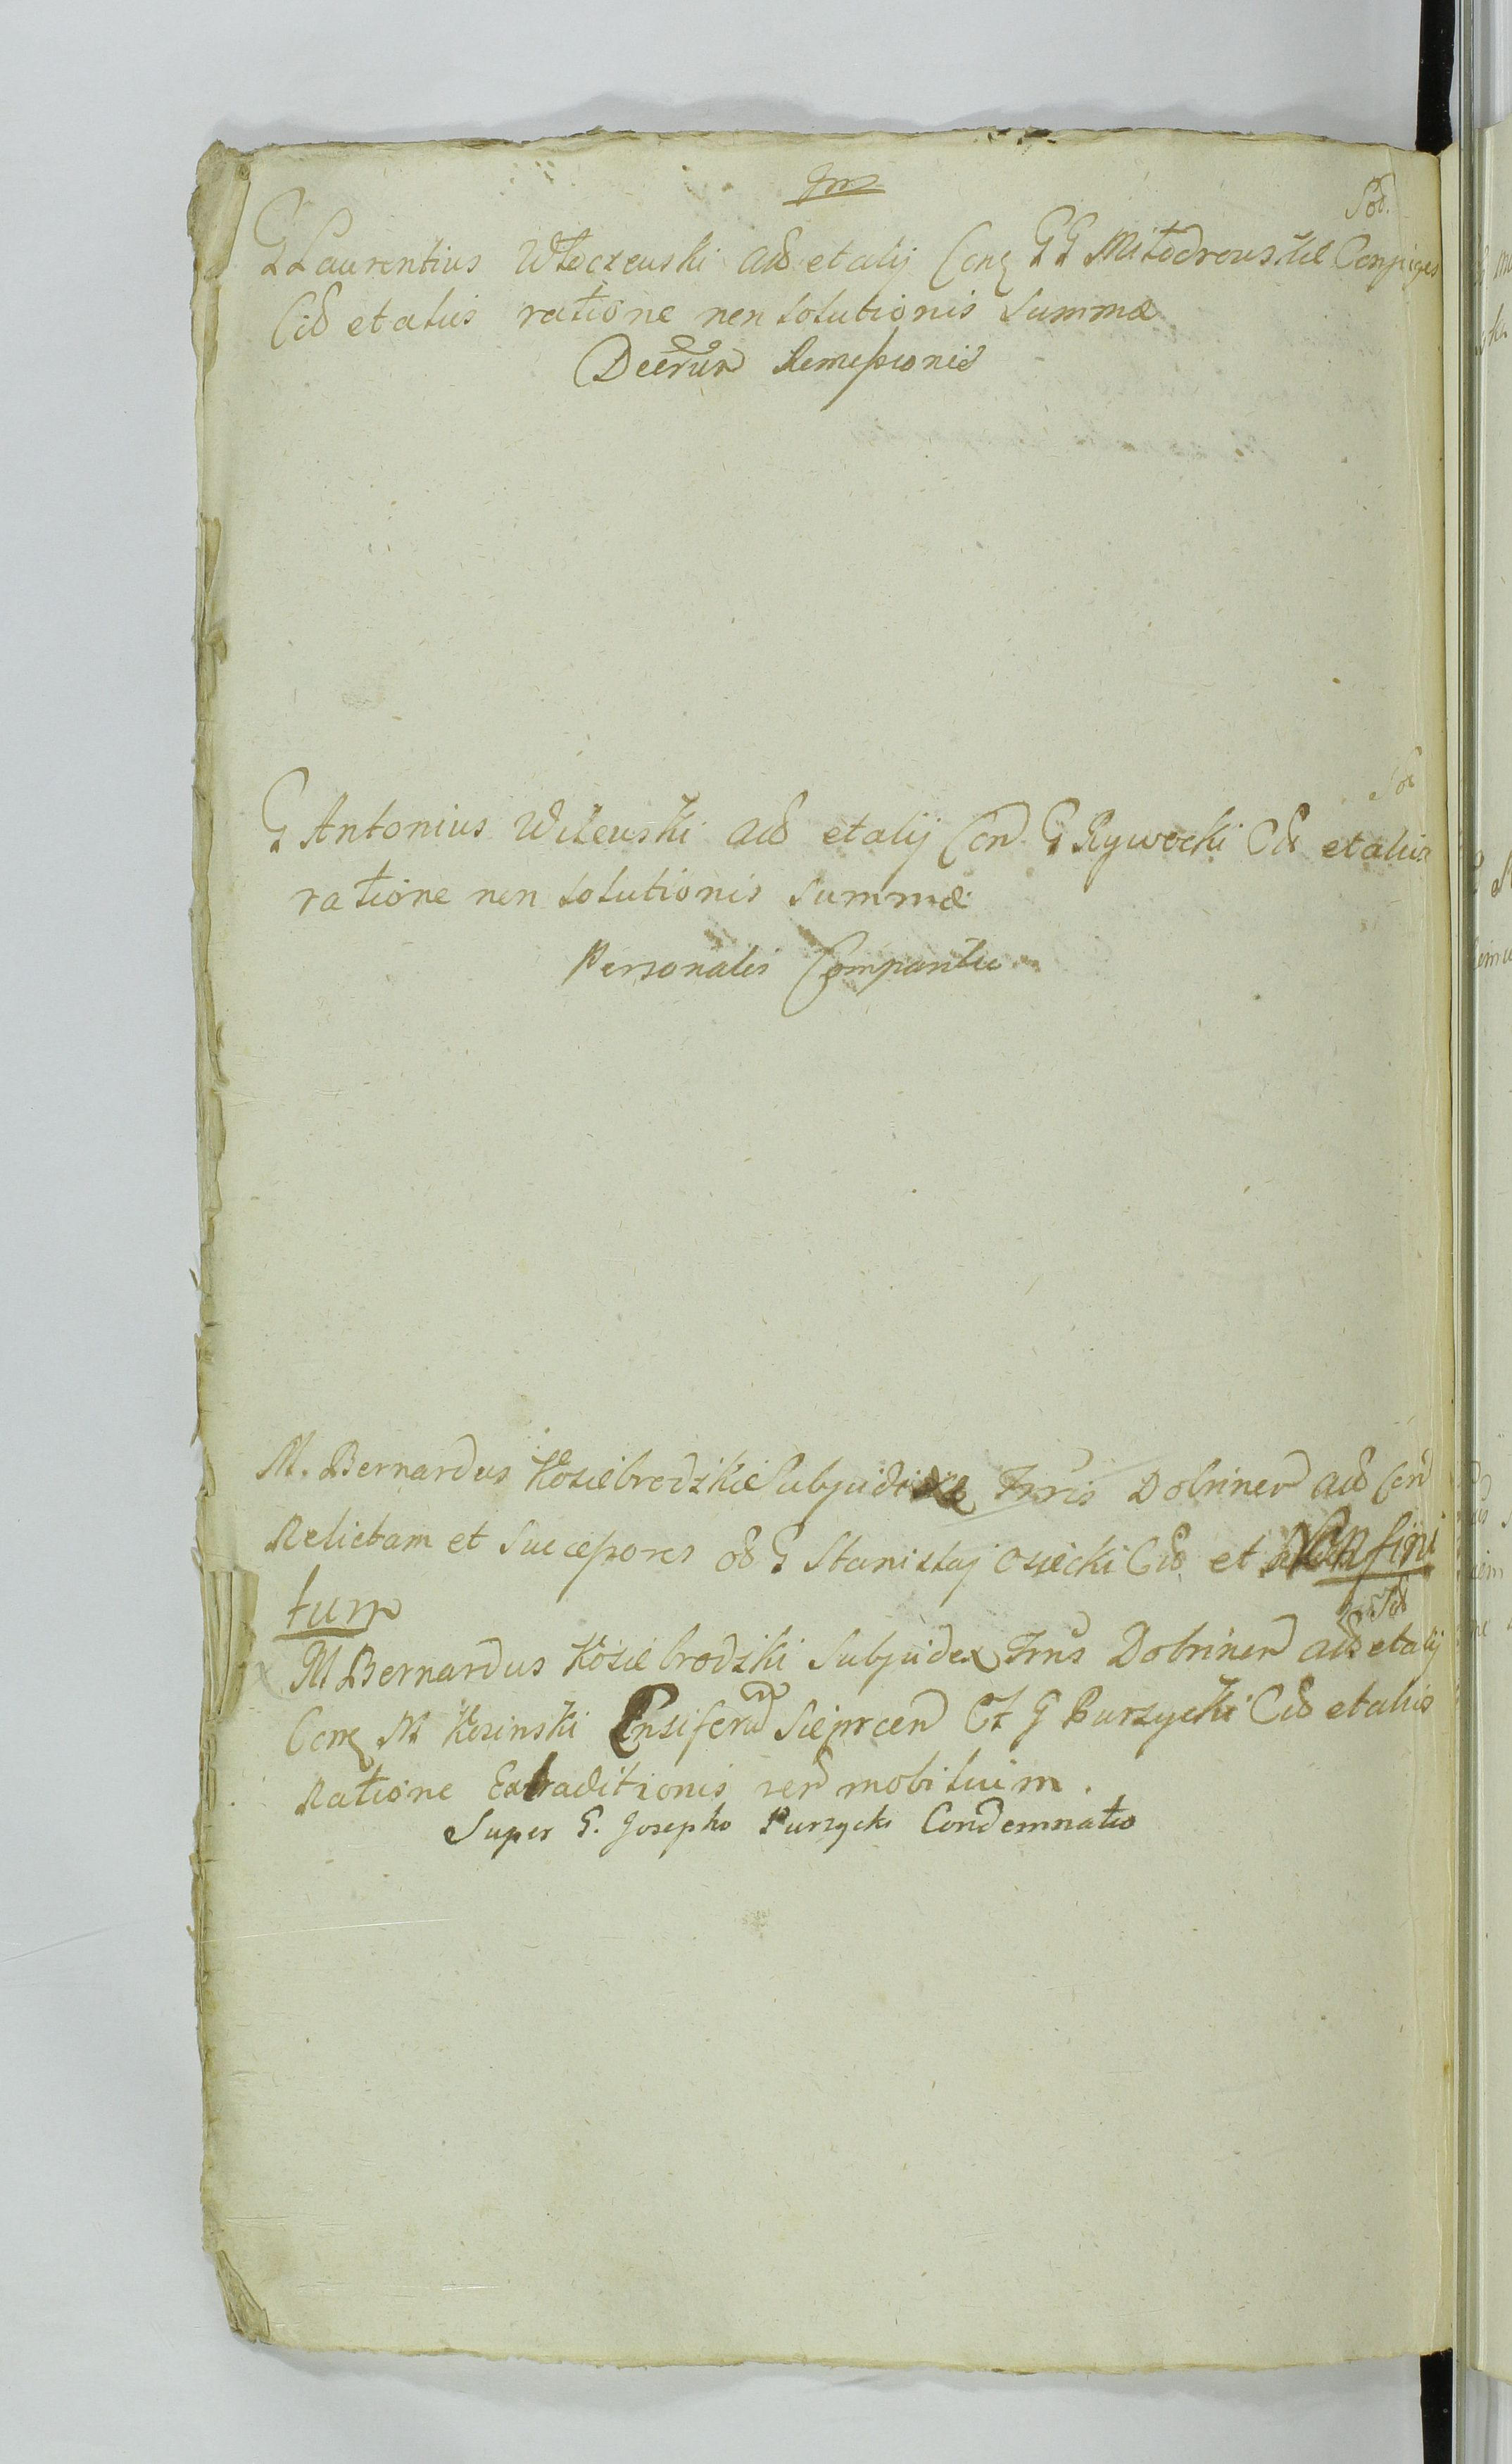 Sol.
G Laurentius Włoczewski Acto et alij Conq GG Miłodrowskie Conjuges
Cito et aliis ratione non solutionis Summæ
Decrtum Remissionis
G Antonius Wilewski Acto et alij Con G Rywocki Cito et aliis
ratione non solutionis Summæ
Personalis Comparitio
M. Bernardus Kosiebrodzki Subjudex Trris Dobrinen Acto Con
Relictam et Successores G Stanislaj Osiecki Cito et Non fini
tum
M Bernardus Kosiebrodzki Subjudex Trris Dobrinen Acto et alij
Conq M Kosinski Ensiferum Sieprcen Et G Purzycki Cito et aliis
Ratione Extraditionis rer mobilium.
Super G. Josepho Purzycki Condemnatio